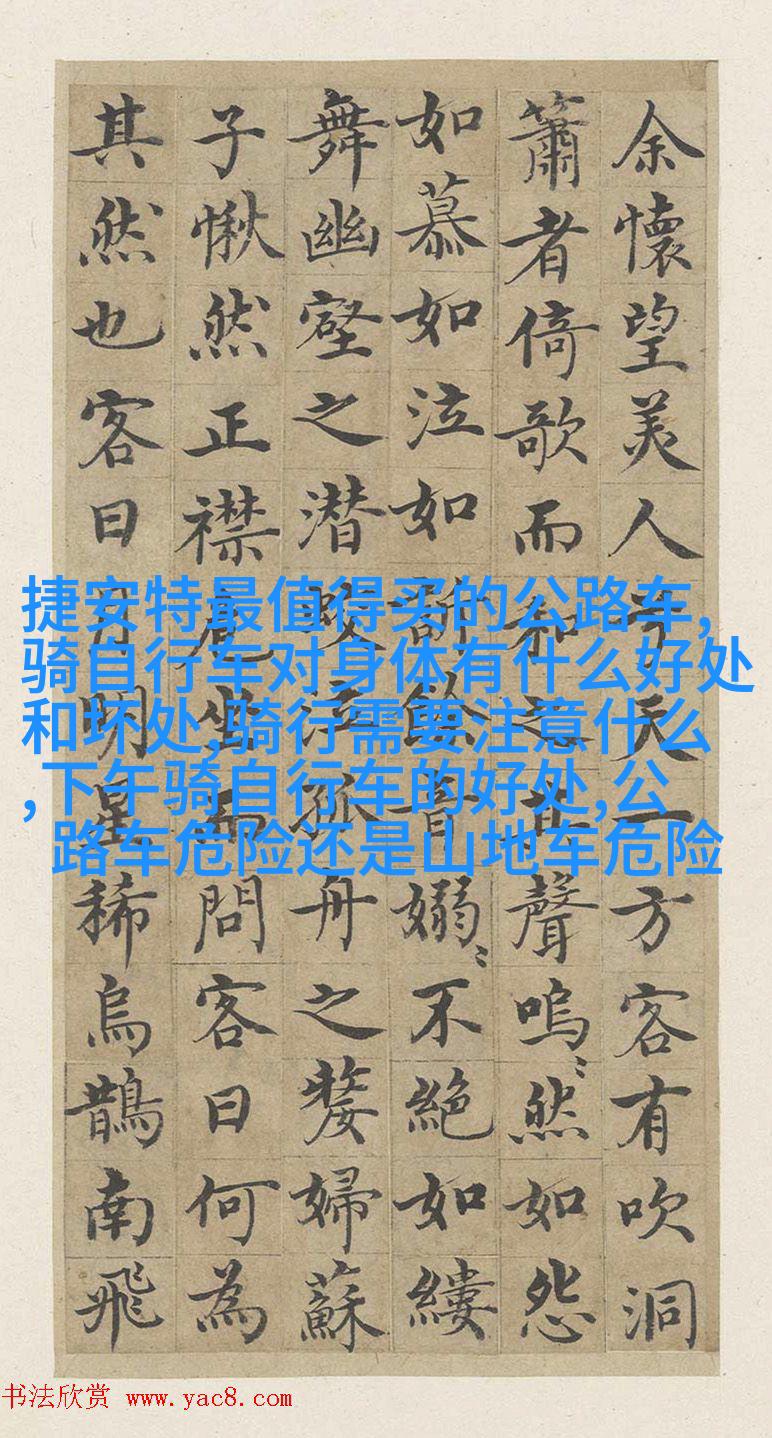 余懷望美人兮天一方客有吹洞
簫者倚歌而和之其聲嗚〻然如怨
如慕如泣如訴餘音嫋〻不絕如縷
舞幽壑之潛蛟泣孤舟之嫠婦蘇
子愀然正襟危坐而問客曰何為
其然也客曰月明星稀烏鵲南飛
捷安特最值得买的公路车,
骑自行车对身体有什么好处
和坏处,骑行需要注意什么
,下午骑自行车的好处,公
路车危险还是山地车危险
书法欣赏 www.yac8.com